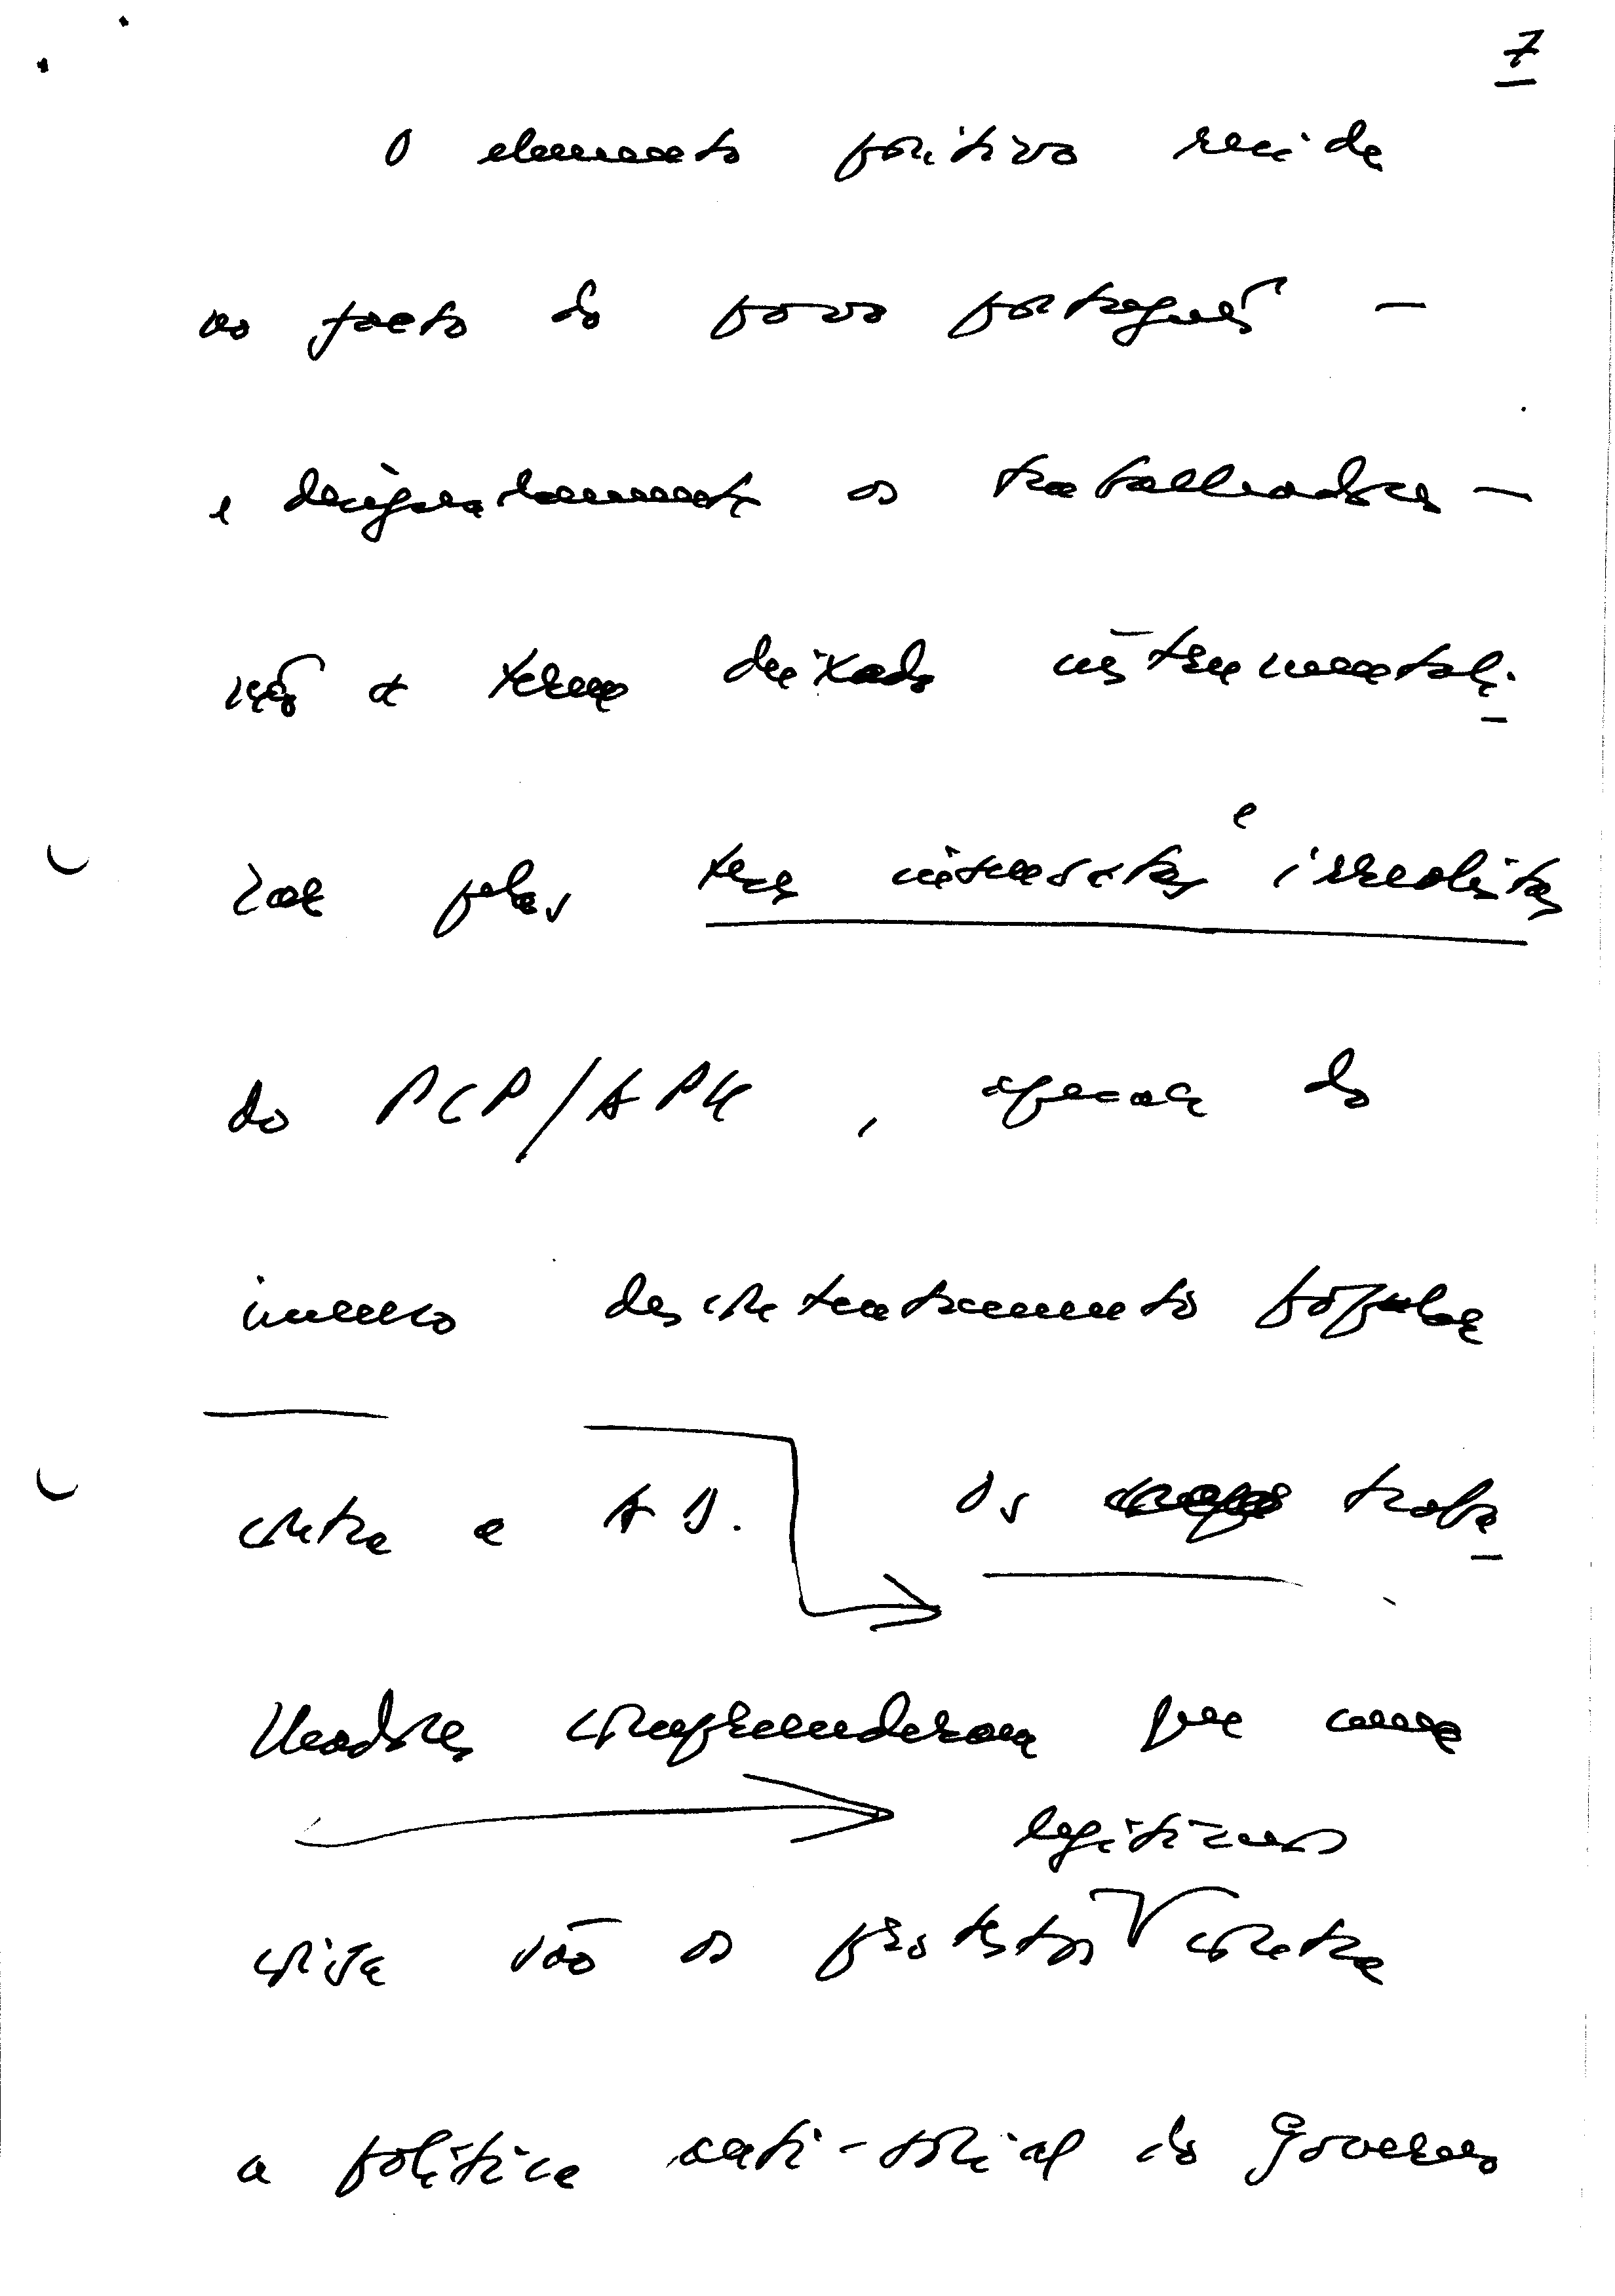 7
O elemento positivo reside
no facto do povo português —
e designadamente os trabalhadores —
não se terem deixado instrumentali-
zar pelas teses e irrealistas
do PCP/APU, apesar do
imenso descontentamento popular
contra a AD. Os traba-
lhadores compreenderam que uma
legítimos
coisa são os protestos contra
a política anti-social do Governo